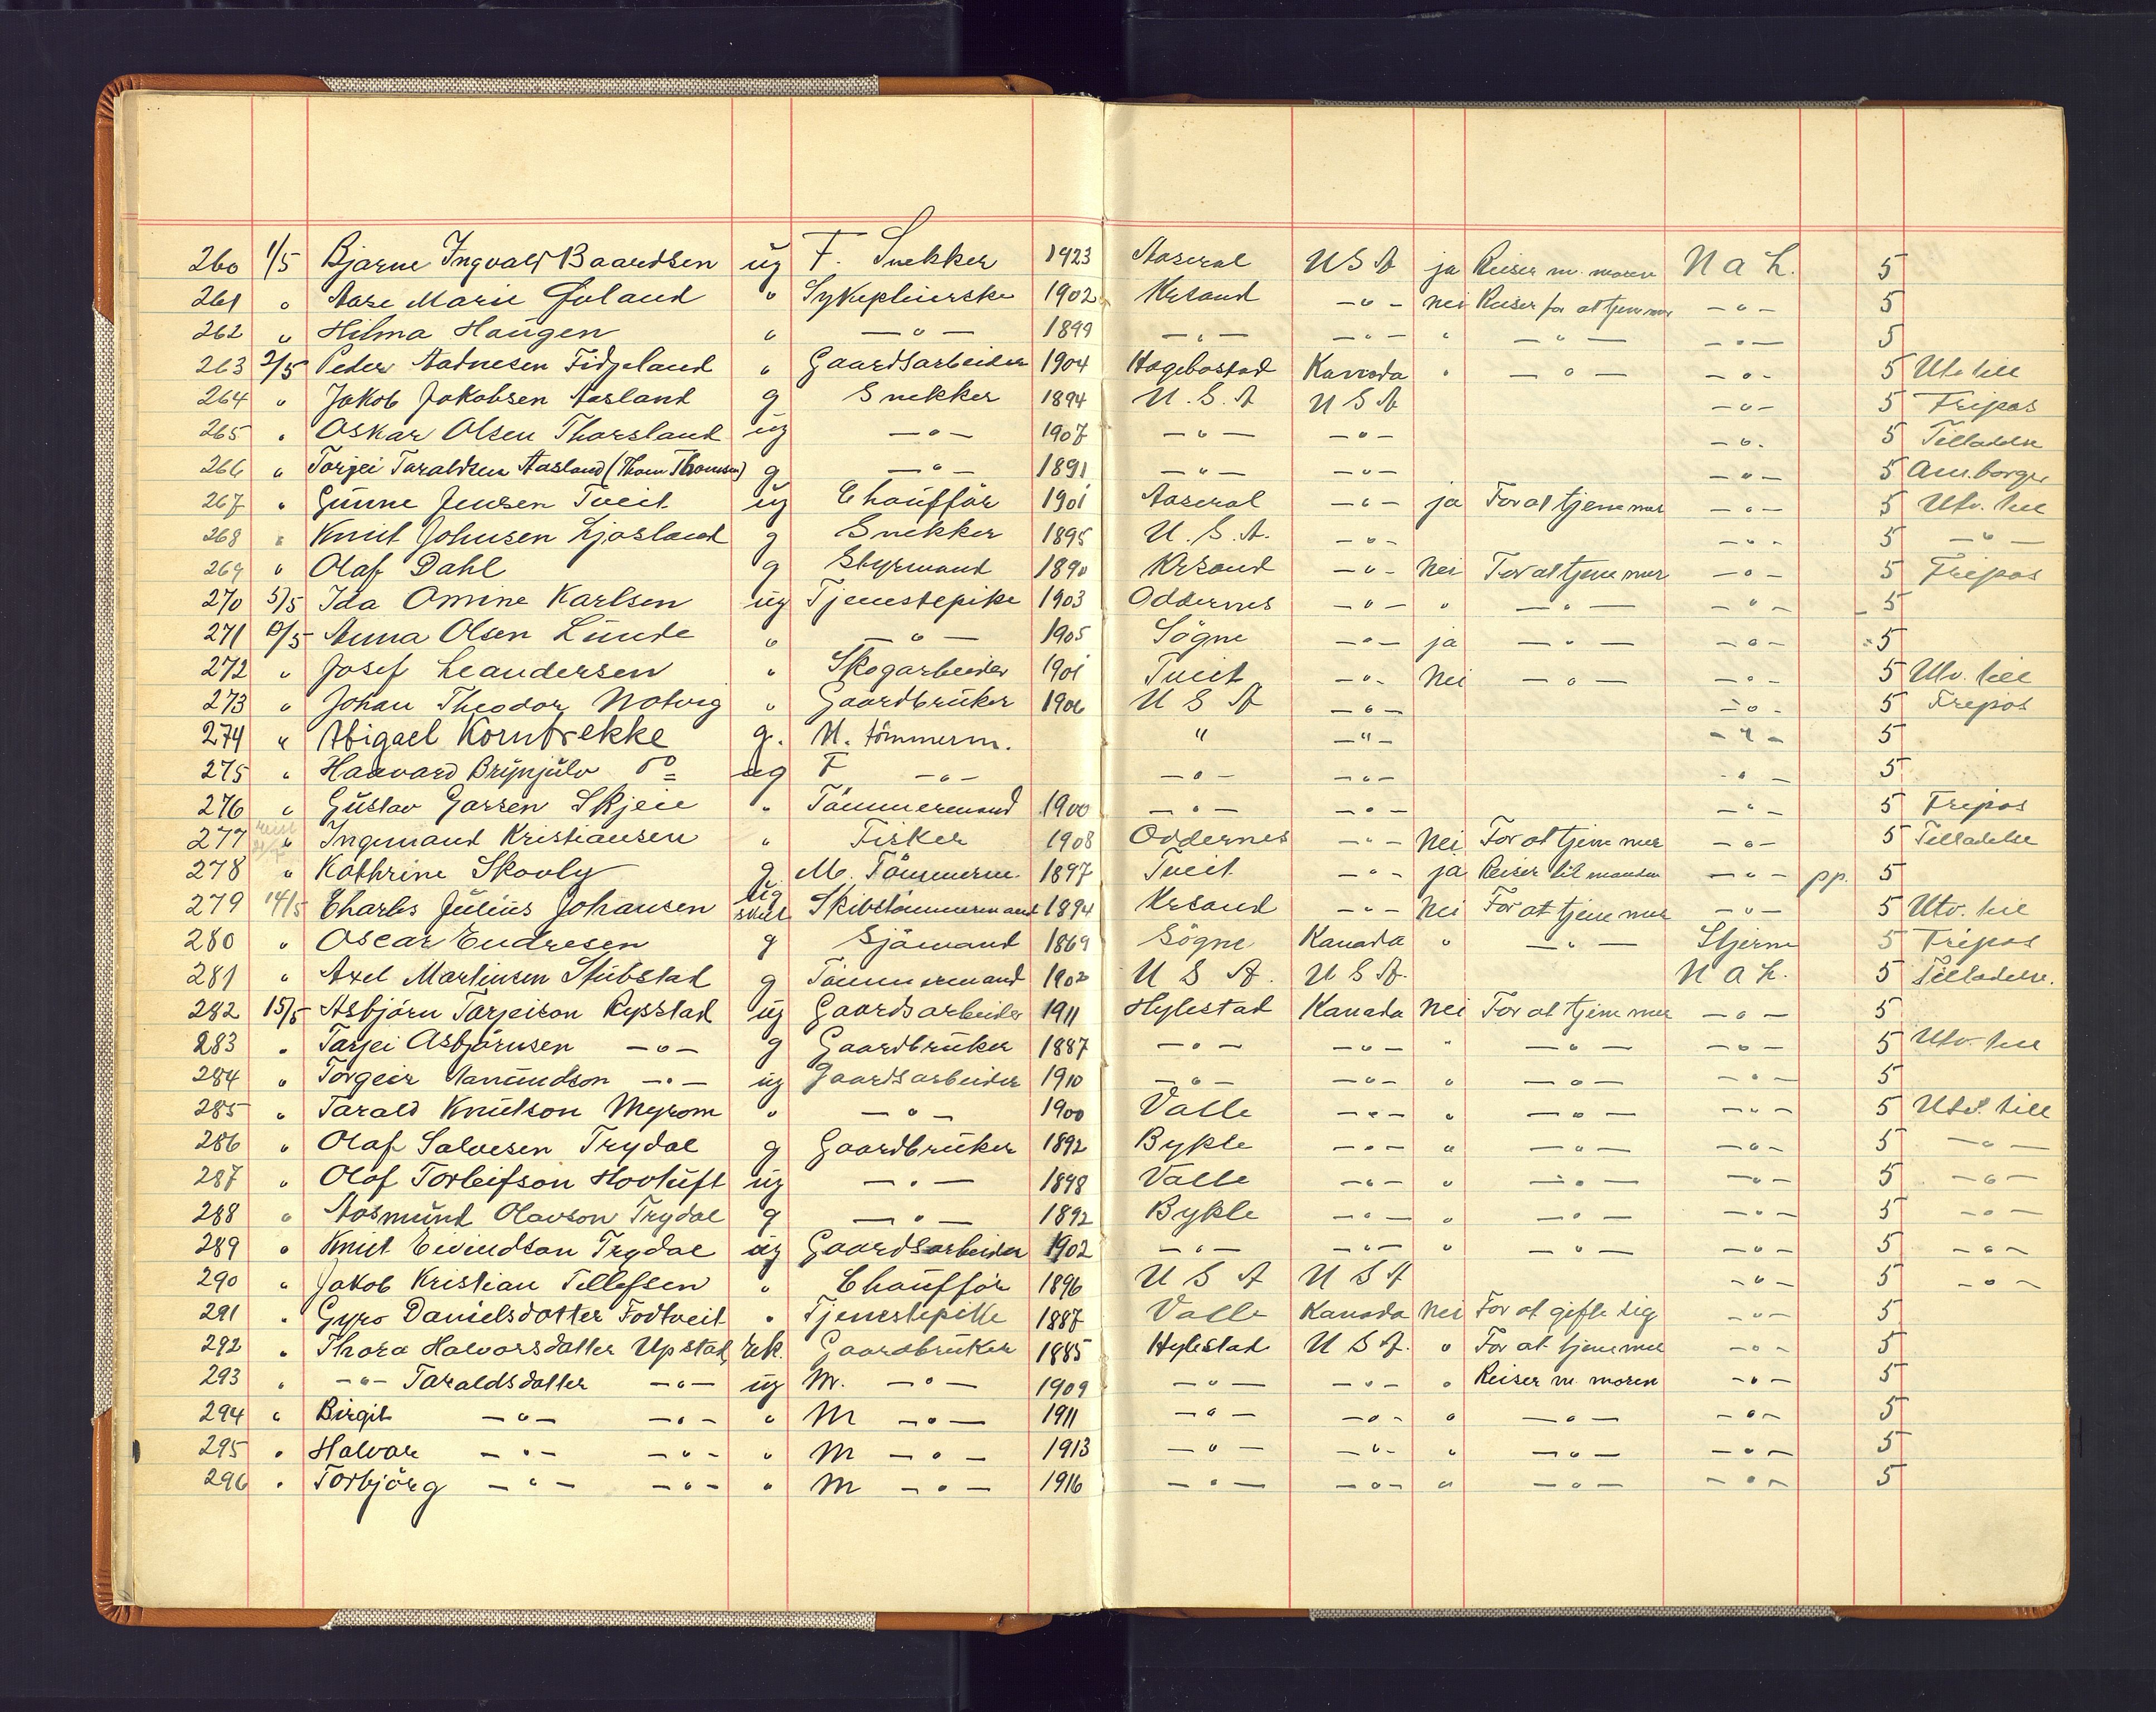 260 1/5 Bjarne Ingvald Baardsen ug F. Snekker 1923 Aaseral USA ja Reiser m. moren N a L. 5
261 " Aase Marie Øvland " Sykepleierske 1902 Krsand -"- nei Reiser for at tjene mer -"- 5
262 " Hilma Haugen " -"- 1899 -"- -"- " -"- -"- 5
263 2/5 Peder Aadnesen Fidjeland " Gaardsarbeider 1904 Hægebostad Kanada " -"- -"- 5 Utv. till
264 " Jakob Jakobsen Aasland g Snekker 1894 U.S.A USA -"- 5 Fripas
265 " Oskar Olsen Thorsland ug -"- 1907 -"- -"- -"- 5 Tilladelse
266 " Torjei Taraldsen Aasland (Thom Thomsen) g -"- 1891 -"- -"- -"- 5 Am. borger
267 " Gunne Jensen Tveit ug Chauffør 1901 Aaseral -"- ja For at tjene mer -"- 5 Utv. till
268 " Knut Johnsen Ljosland g Snekker 1895 U.S.A. -"- -"- 5 -"-
269 " Olaf Dahl g Styrmand 1890 Krsand -"- Nei For at tjene mer -"- 5 Fripas
270 5/5 Ida Omine Karlsen ug Tjenestepike 1903 Oddernes -"- " -"- -"- 5
271 /5 Anna Olsen Lunde " -"- 1905 Søgne -"- ja -"- -"- 5
272 " Josef Leandersen " Skogarbeider 1901 Tveit -"- Nei -"- -"- 5 Utv. till
273 " Johan Theodor Notvig " Gaardbruker 1906 USA -"- -"- 5 Fripas
274 " Abigael Korntrekke g. M. tömmerm. " -"- -"- 5
275 " Haavard Brynjulv do ug F -"- -"- -"- -"- 5
276 " Gustav Skjeie " Tømmermand 1900 -"- -"- -"- 5 Fripas
277 " Ingemand Kristiansen " Fisker 1908 Oddernes -"- Nei For at tjene mer -"- 5 Tilladelse
278 " Kathrine Skovly g M. Tømmerm. 1897 Tveit -"- ja Reiser til manden -"- pp. 5
279 14/5 Charles Julius Johansen ug skilt Skibstømmermand 1894 Krsand -"- Nei For at tjene mer -"- 5 Utv. till
280 " Oscar Endresen g Sjømand 1869 Søgne Kanada " -"- Stjerne 5 Fripas
281 " Axel Martinsen Stubstad g Tømmermand 1902 USA. USA. N a L. 5 Tilladelse.
282 15/5 Asbjørn Tarjeison Rysstad ug Gaardsarbeider 1911 Hylestad Kanada Nei For at tjene mer -"- 5
283 " Tarjei Asbjørnsen -"- g Gaardbruker 1887 -"- -"- " -"- -"- 5 Utv. till
284 " Torgeir Aanundson -"- ug Gaardsarbeider 1910 -"- -"- " -"- -"- 5
285 " Tarald Knutson Myrom " -"- 1900 Valle -"- " -"- -"- 5 Utv. till
286 " Olaf Salvesen Trydal g Gaardbruker 1892 Bykle -"- " -"- -"- 5 -"-
287 " Olaf Torleifson Hovtuft ug -"- 1898 Valle -"- " -"- -"- 5 -"-
288 " Aasmund Olavson Trydal g -"- 1892 Bykle -"- " -"- -"- 5 -"-
289 " Knut Eivindson Trydal ug Gaardsarbeider 1902 -"- -"- " -"- -"- 5 -"-
290 " Jakob Kristian Tellefsen " Chauffør 1896 USA USA -"- 5 -"-
291 " Gyro Danielsdotter Fodtveit " Tjenestepike 1887 Valle Kanada Nei For at gifte sig -"- 5
292 " Thora Halvorsdatter Upstad, Enk. Gaardbruker 1885 Hylestad USA. " For at tjene mer -"- 5
293 " -"- Taraldsdatter -"- ug M. -"- 1909 -"- -"- " Reiser m. moren -"- 5
294 " Birgit -"- -"- " M -"- 1911 -"- -"- " -"- -"- 5
295 " Halvar -"- -"- " M -"- 1913 -"- -"- " -"- -"- 5
296 " Torbjörg -"- -"- " M -"- 1916 -"- -"- " -"- -"- 5